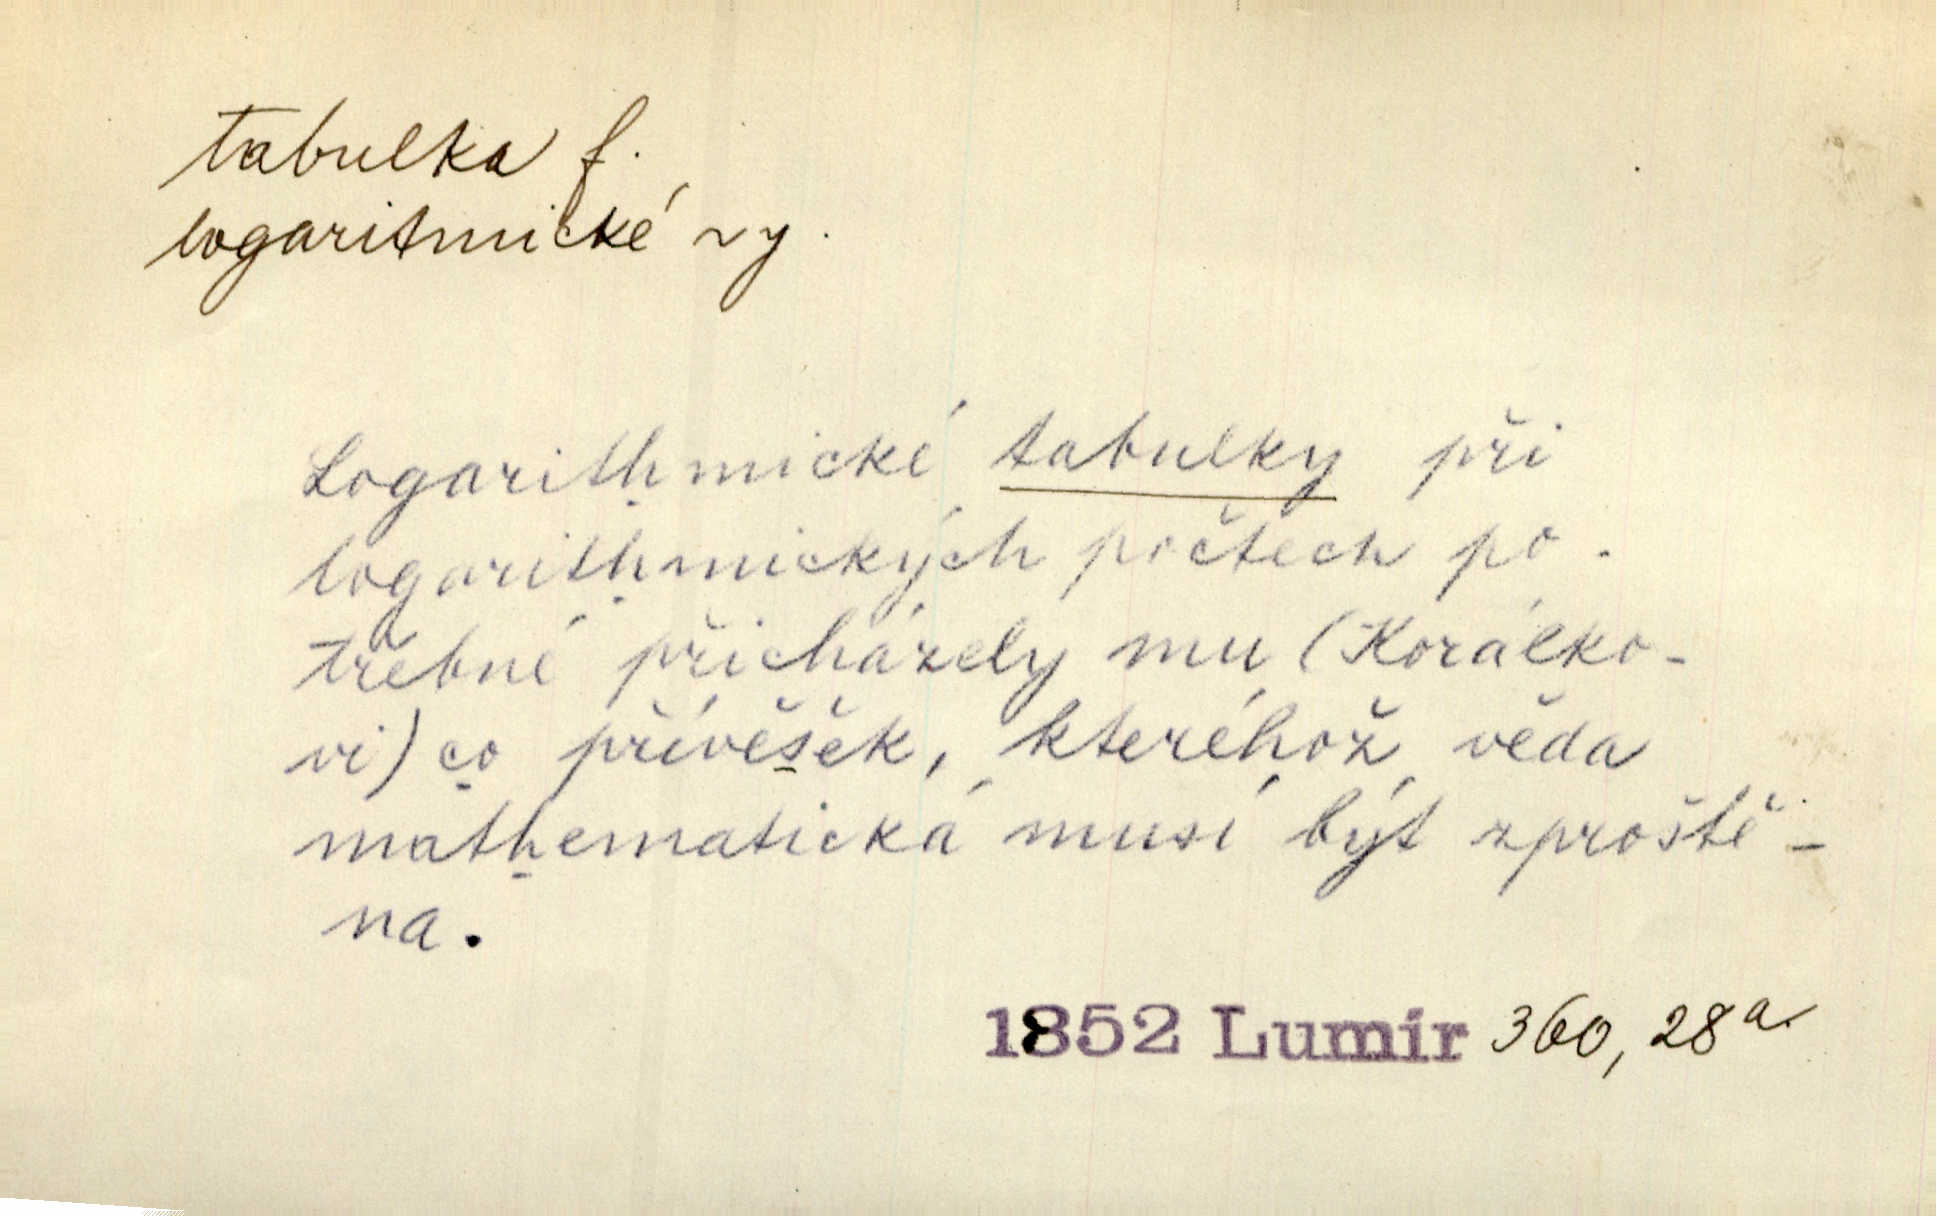 tabulka f.
logaritmické ~y.
Logarithmické tabulky při
logarithmických počtech po-
třebné přicházely mu (Korálko-
vi) co přívěšek, kteréhož věda
mathematická musí být zproště-
na.
1852 Lumír 360, 28a.